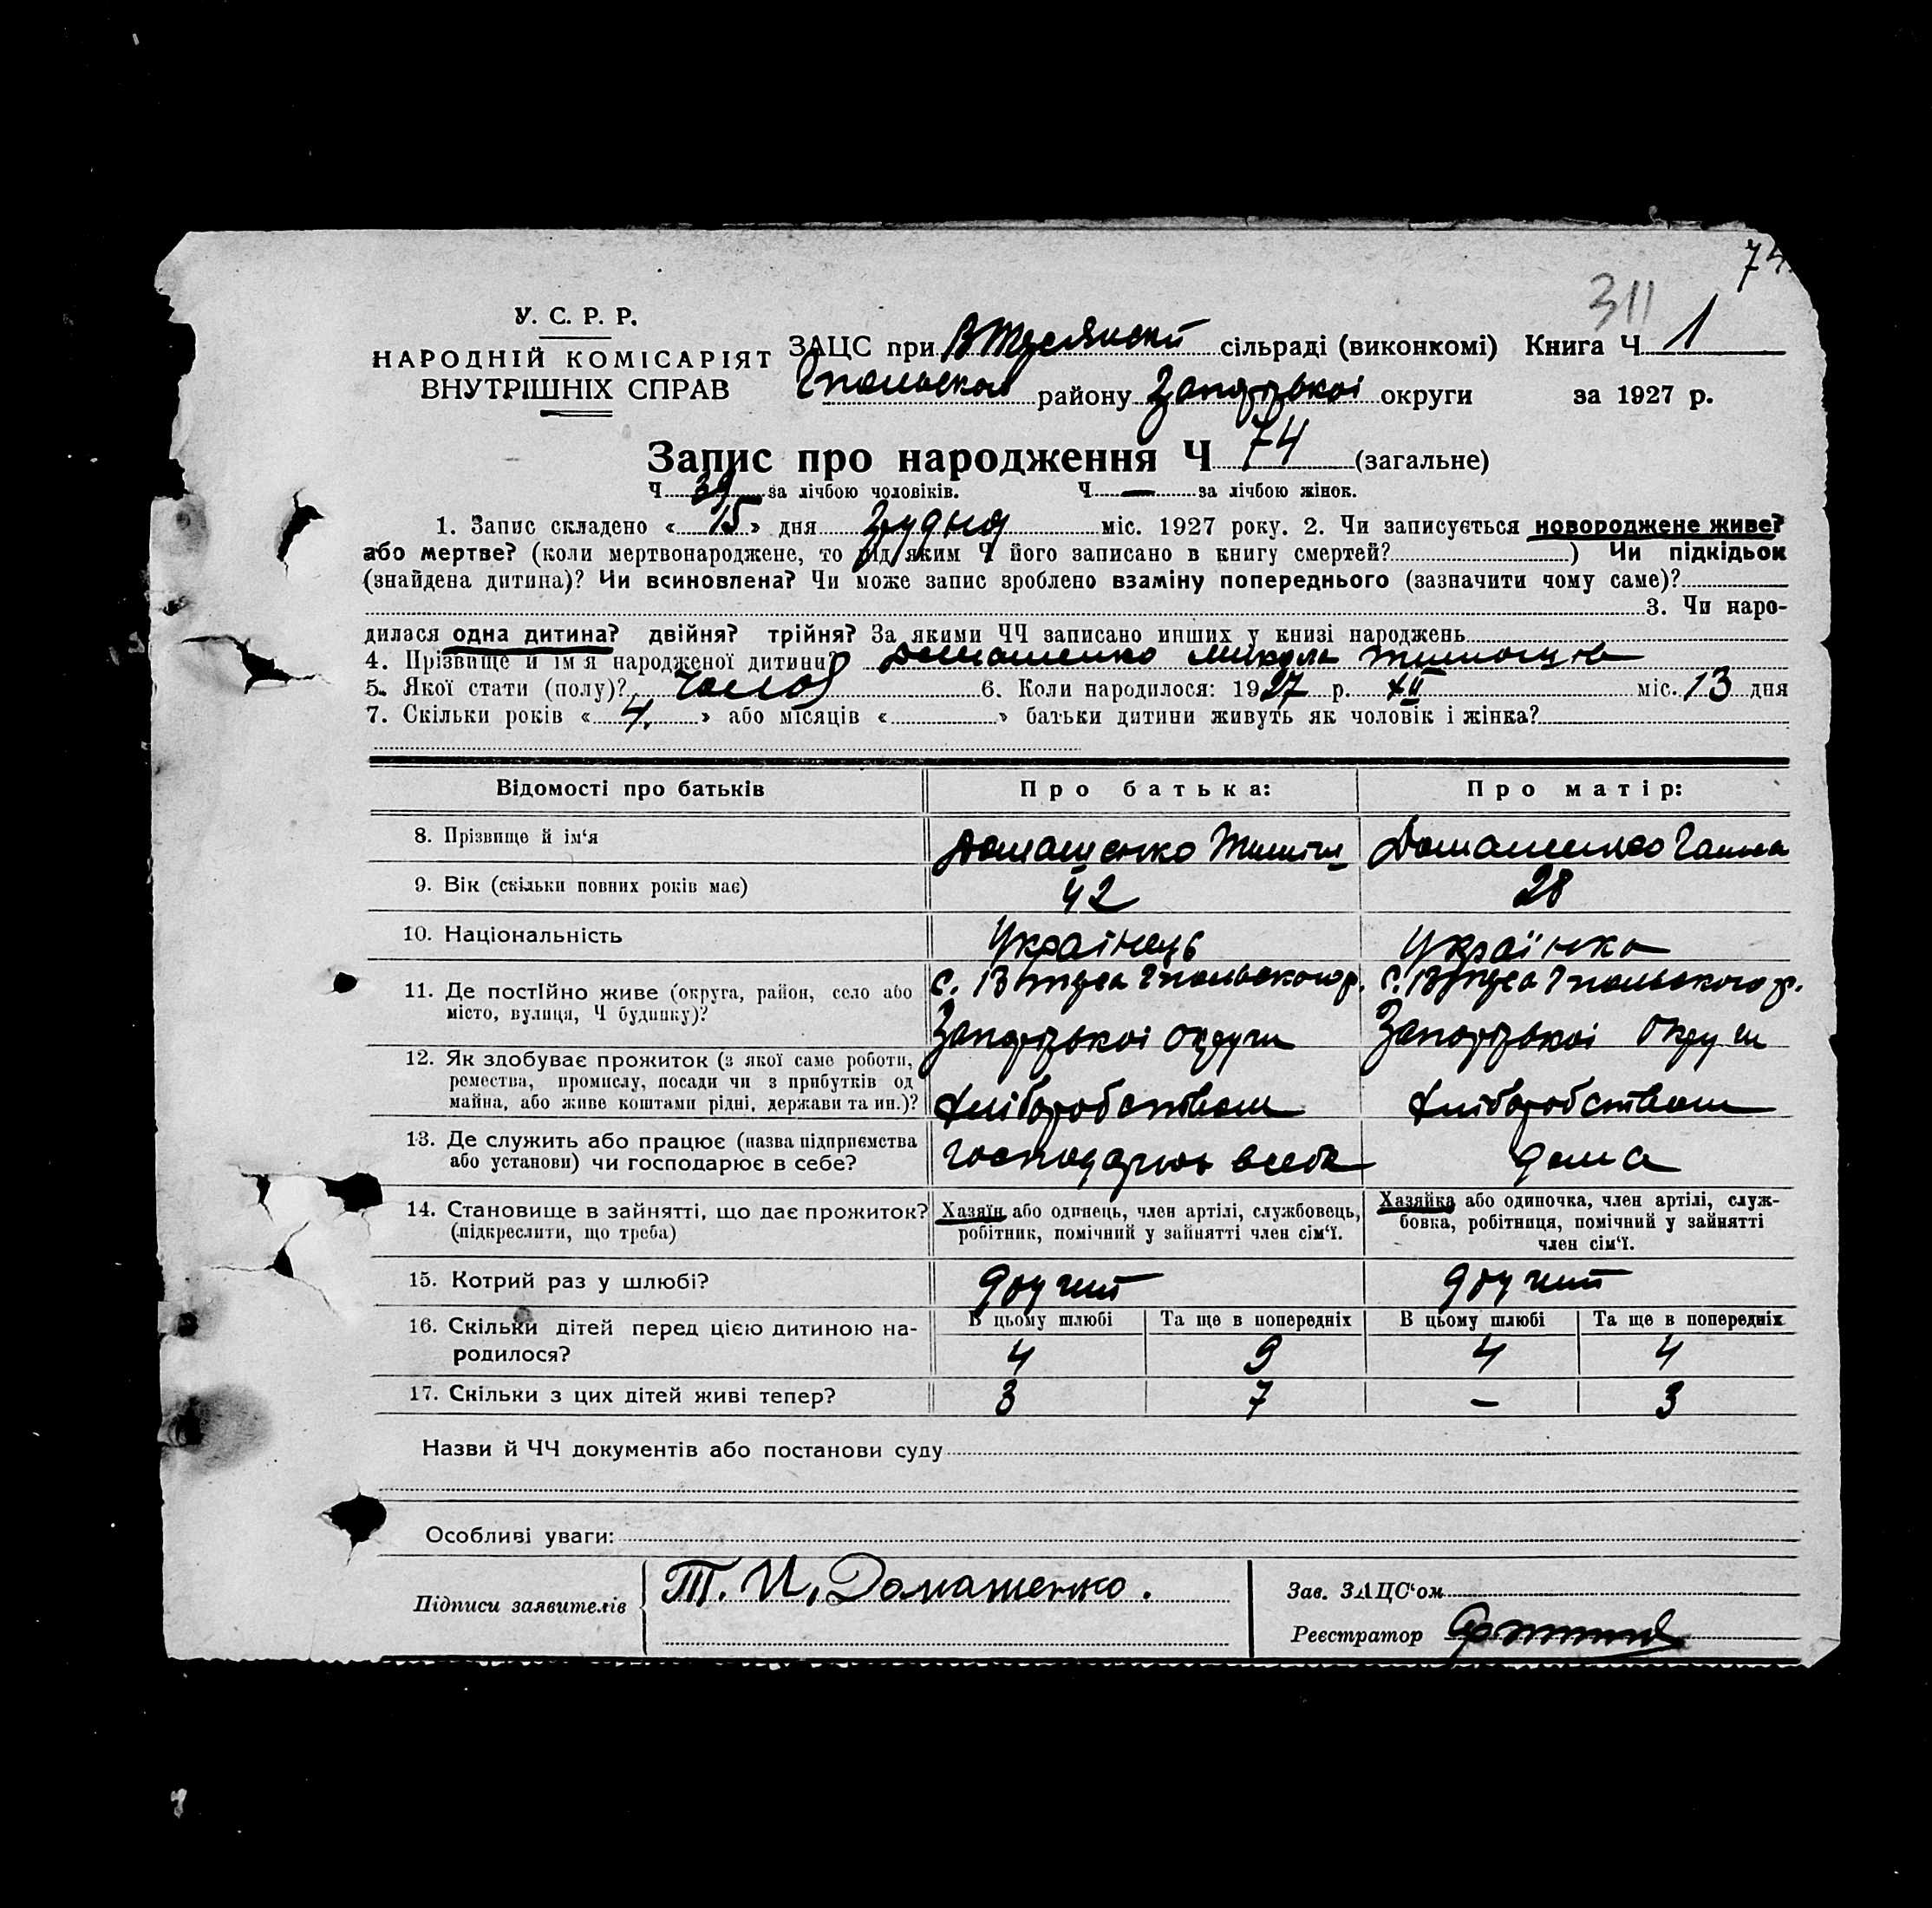 74
311
У. С. Р. Р.
НАРОДНІЙ КОМІСАРІЯТ
ВНУТРІШНІХ СПРАВ
ЗАЦС при сільраді (виконкомі) Книга Ч 1
району Запорізької округи за 1927 р.
Запис про народження Ч 74 (загальне)
Ч 39 за лічбою чоловіків. Ч — за лічбою жінок.
1. Запис складено « 15 » дня Грудня міс. 1927 року. 2. Чи записується новороджене живе?
або мертве? (коли мертвонароджене, то під яким Ч його записано в книгу смертей? ) Чи підкідьок
(знайдена дитина)? Чи всиновлена? Чи може запис зроблено взаміну попереднього (зазначити чому саме)?
3. Чи наро-
дилася одна дитина? двійня? трійня? За якими ЧЧ записано инших у книзі народжень
4. Прізвище й ім'я народженої дитини? Домашенко Микола
5. Якої стати (полу)? 6. Коли народилося: 1927 р. XII міс. 13 дня
7. Скільки років « 4. » або місяців « » батьки дитини живуть як чоловік і жінка?
Відомості про батьків Про батька: Про матір:
8. Прізвище й ім'я Домашенко Домашенко Ганна
9. Вік (скільки повних років має) 42 28
10. Національність Українець Українка
11. Де постійно живе (округа, район, село або
місто, вулиця, Ч будинку)?
Запорізької округи Запорізької округи
12. Як здобуває прожиток (з якої саме роботи,
ремества, промислу, посади чи з прибутків од
майна, або живе коштами рідні, держави та ин.)? Хліборобством Хліборобством
13. Де служить або працює (назва підприємства
або установи) чи господарює в себе? дома
14. Становище в зайнятті, що дає прожиток?
(підкреслити, що треба)
Хазяїн або одинець, член артілі, службовець,
робітник, помічний у зайнятті член сім'ї.
Хазяйка або одиночка, член артілі, служ-
бовка, робітниця, помічний у зайнятті
член сім'ї.
15. Котрий раз у шлюбі? другий другий
16. Скільки дітей перед цією дитиною на-
родилося?
В цьому шлюбі Та ще в попередніх В цьому шлюбі Та ще в попередніх
4 9 4 4
17. Скільки з цих дітей живі тепер? 3 7 – 3
Назви й ЧЧ документів або постанови суду
Особливі уваги:
Підписи заявителів Т. И. Домашенко.
Зав. ЗАЦС'ом
Реєстратор